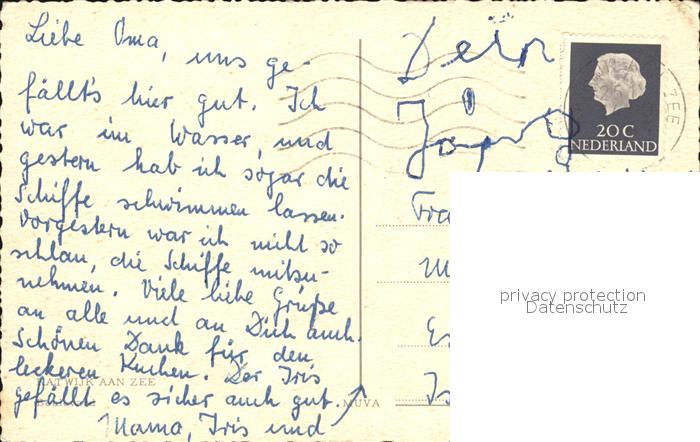 Liebe Oma, uns ge-
fällt's hier gut. Ich
war im Wasser, und
gestern hab ich sogar die
Schiffe schwimmen lassen.
Vorgestern war ich nicht so
schlau, die Schiffe mitzu-
nehmen. Viele liebe Grüße
an alle und an Dich auch.
Schönen Dank für den
leckeren Kuchen. Der Iris
gefällt es sicher auch gut.
Mama, Iris und
Dein
Jörg
KATWIJK AAN ZEE
MUVA
20 C
NEDERLAND
ZEE
privacy protection
Datenschutz